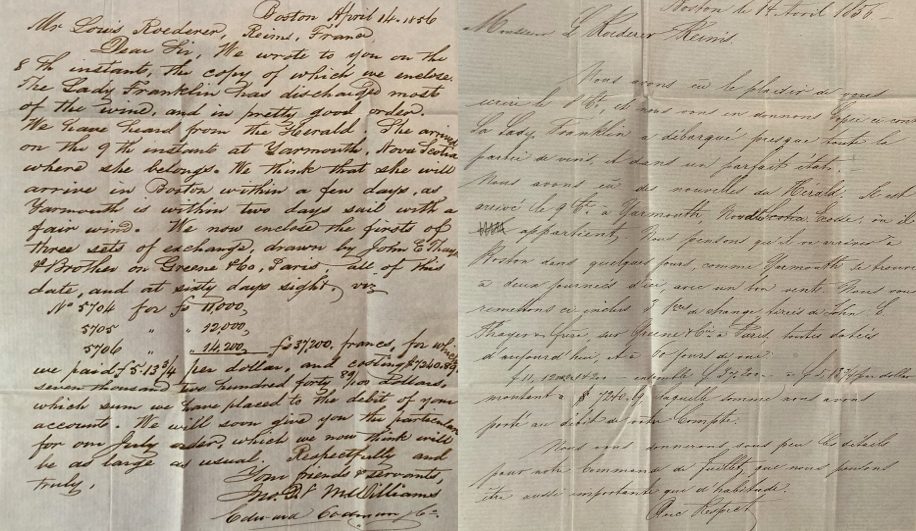 Boston April 14. 1856
Mr Louis Roederer, Reims, France
Dear Sir, We wrote to you on the
8th instant, the copy of which we enclose.
The Lady Franklin has discharged most
of the wine, and in pretty good order.
We have heard from the Herald. She arrived
on the 9th instant at Yarmouth, Nova Scotia
where she belongs. We think that she will
arrive in Boston within a few days, as
Yarmouth is within two days sail with a
fair wind. We now enclose the firsts of
three sets of exchange, drawn by John E Thayer
& Brother on Greene & Co, Paris, all of this
date, and at sixty days sight, viz
No 5704 for fs 11,000,
5705 " " 12,000,
5706 " " 14,200, fs 37,200, francs, for which
we paid f 5.13 3/4 per dollar, and costing $7240.89,
seven thousand two hundred forty 89/100 dollars,
which sum we have placed to the debit of your
account. We will soon give you the particulars
for our July order, which we now think will
be as large as usual. Respectfully and
truly, Your friends & servants,
McWilliams
Edward Codman & Co.
Boston le 14 Avril 1856
Monsieur L Roederer Reims.
Nous avons eu le plaisir de vous
écrire le 8 Ct, et nous vous en donnons Copie ci contre
La Lady Franklin a débarqué presque toute la
partie de vins, et dans un parfait état.
Nous avons eu des nouvelles du Herald. Il est
arrivé le 9 Ct. à Yarmouth, où il
appartient, Nous pensons qu'il va arriver à
Boston dans quelques jours, comme Yarmouth se trouve
à deux journées d'ici, avec un bon vent. Nous vous
remettons ci inclus 3 pres de change tirées de John E
Thayer & frère, sur Greene & Cie à Paris, toutes datées
d'aujourd'hui, et à 60 jours de vue:
ensemble f 37.200 — à f 5.13 3/4 per dollar
montant à $ 7240.89 laquelle somme nous avons
porté au débit de votre Compte.
Nous vous donnerons sous peu les détails
pour notre commande de Juillet, que nous pensons
être aussi importante que d'habitude.
Avec Respect